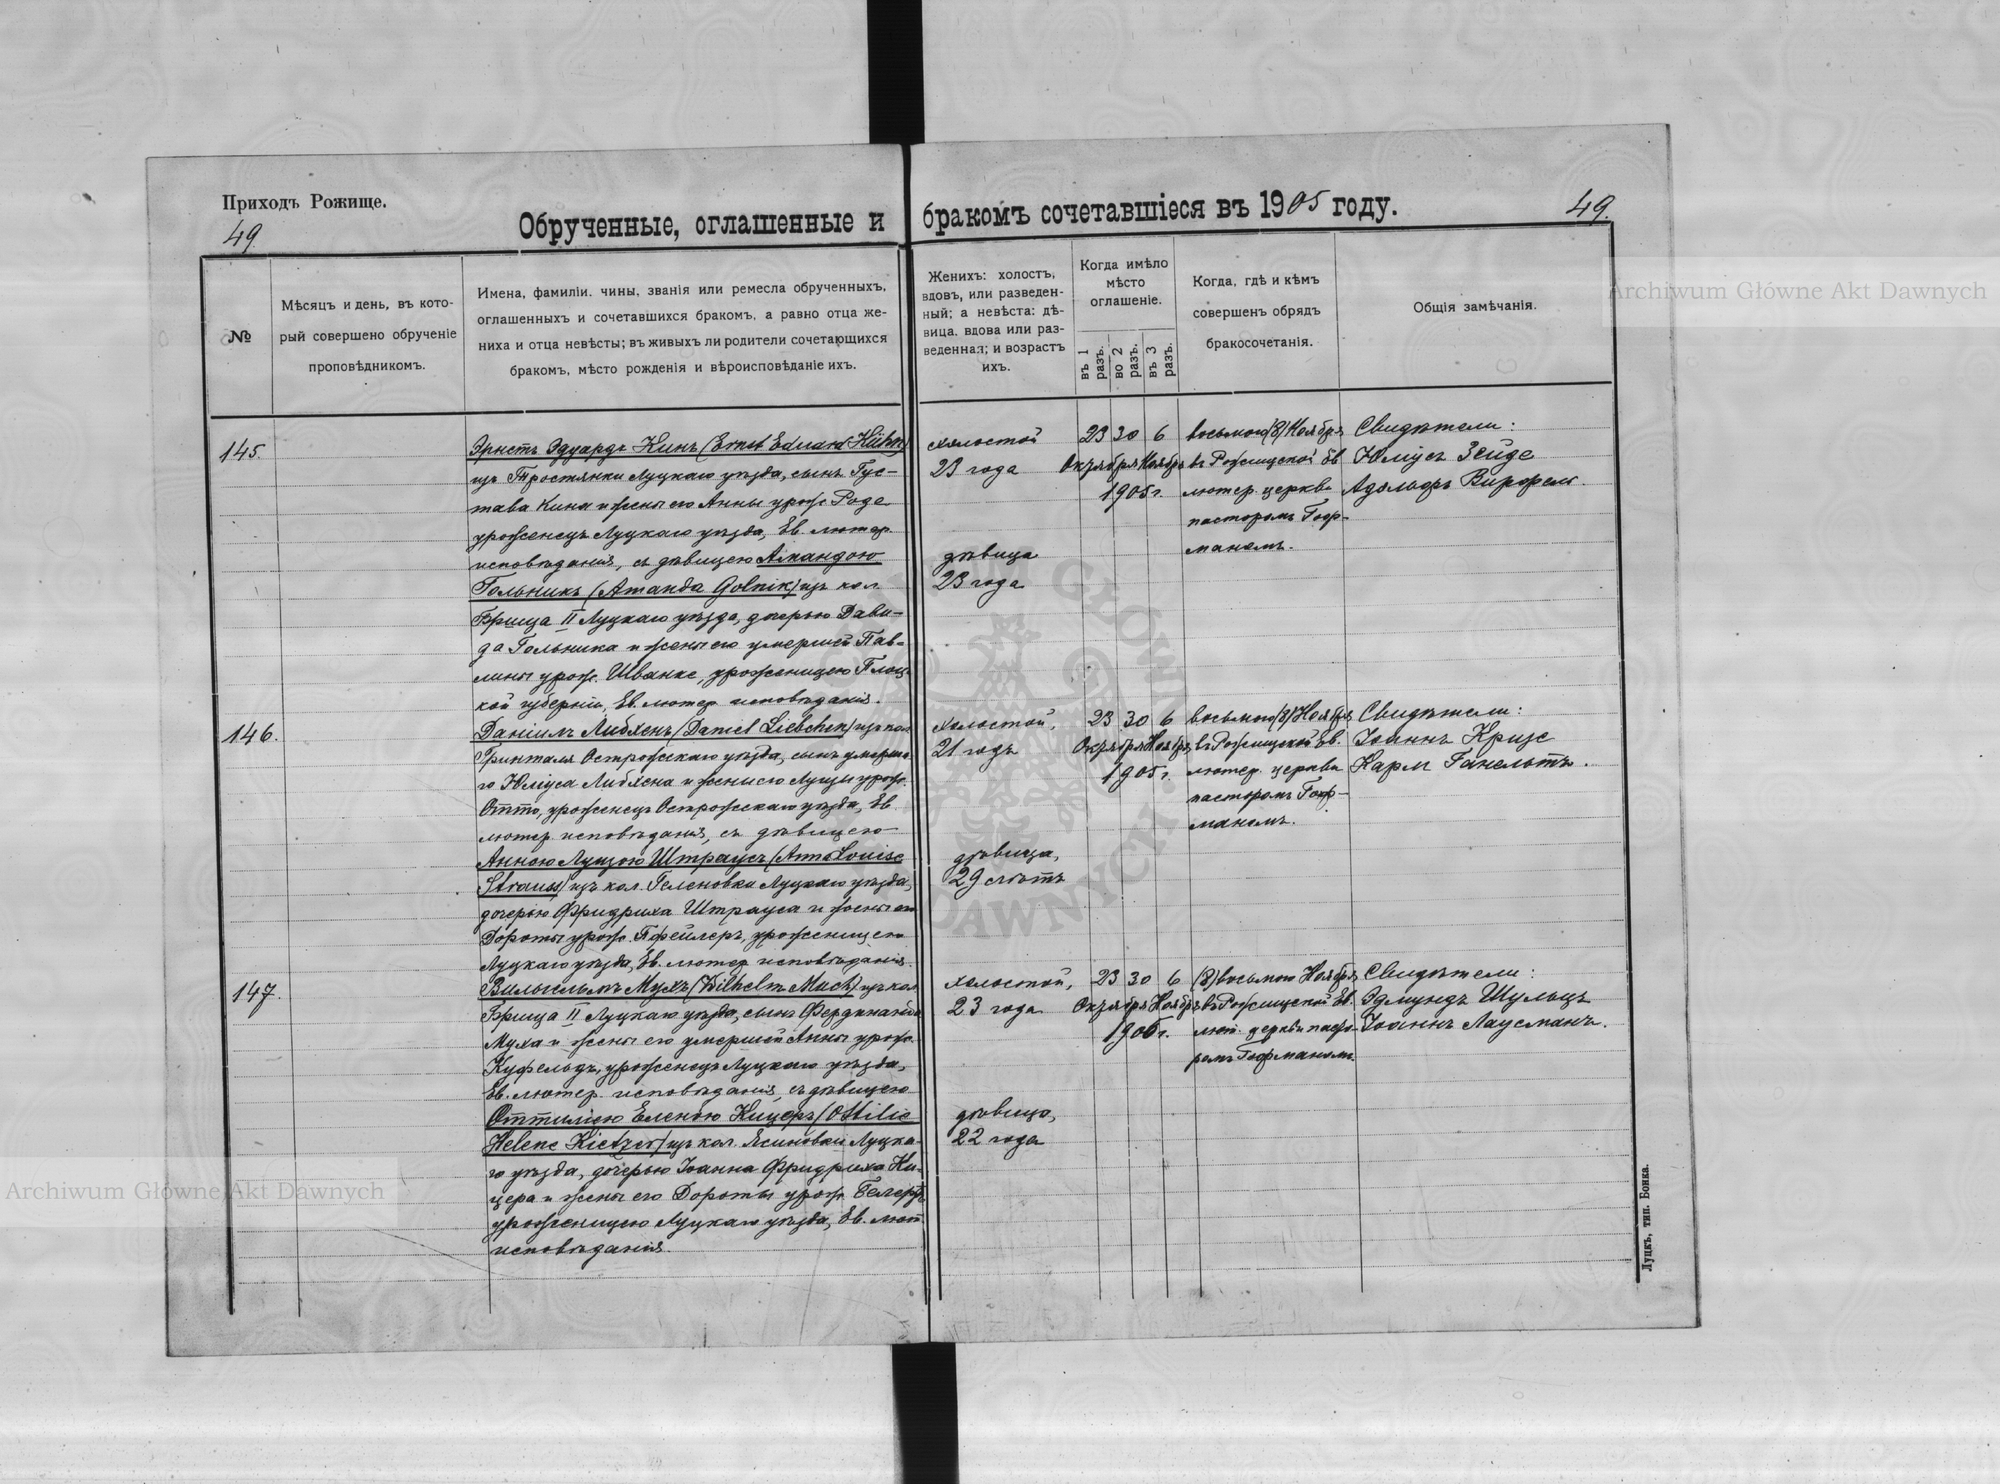 Приходъ Рожище.
49
Обрученные, оглашенные и бракомъ сочетавшіеся въ 1905 году.
49.
№
Мѣсяцъ и день, въ кото-
рый совершено обрученіе
проповѣдникомъ.
Имена, фамиліи, чины, званія или ремесла обрученныхъ,
оглашенныхъ и сочетавшихся бракомъ, а равно отца же-
ниха и отца невѣсты; въ живыхъ ли родители сочетающихся
бракомъ, мѣсто рожденія и вѣроисповѣданіе ихъ.
Женихъ: холостъ,
вдовъ, или разведен-
ный; а невѣста: дѣ-
вица, вдова или раз-
веденная; и возрастъ
ихъ.
Когда имѣло
мѣсто
оглашеніе.
въ 1 разъ.
во 2 разъ.
въ 3 разъ.
Когда, гдѣ и кѣмъ
совершенъ обрядъ
бракосочетанія.
Общія замѣчанія.
145.
Эрнстъ Эдуардъ Кинъ (Ernst Eduard Kühn)
изъ Тростянки Луцкаго уѣзда, сынъ Гус-
тава Кина и жены его Анны урож. Роде
уроженецъ Луцкаго уѣзда, Ев. лютер.
исповѣданія, съ дѣвицею Амандою
Гольникъ (Amanda Golnik) изъ кол.
Брища II Луцкаго уѣзда, дочерью Дави-
да Гольника и жены его умершей Пав-
лины урож. Шванке, уроженицею Плоц-
кой губерніи, Ев. лютер. исповѣданія.
холостой
23 года
дѣвица
23 года
23 30 6
Октября Ноября
1905 г.
восьмого (8) Ноября
въ Рожищской Ев.
лютер. церкви
пасторомъ Гоф-
маномъ.
Свидѣтели:
Юліусъ Зейде
Адольфъ
146.
Даніилъ Либхенъ (Daniel Liebchen) изъ кол.
Гринталя Острожскаго уѣзда, сынъ умерша-
го Юліуса Либхена и жены его Луизы урож.
Отто, уроженецъ Острожскаго уѣзда, Ев.
лютер. исповѣданія, съ дѣвицею
Анною Луизою Штраусъ (Anna Louise
Strauss) изъ кол. Геленовки Луцкаго уѣзда,
дочерью Фридриха Штрауса и жены его
Дороты урож. Пфейлеръ, уроженицею
Луцкаго уѣзда, Ев. лютер. исповѣданія.
холостой,
21 годъ
дѣвица,
29 лѣтъ
23 30 6
Октября Ноября
1905 г.
восьмого (8) Ноября
въ Рожищской Ев.
лютер. церкви
пасторомъ Гоф-
маномъ.
Свидѣтели:
Іоаннъ Кризе
Карл Ганельтъ.
147.
Вильгельмъ Мухъ (Wilhelm Much) изъ кол.
Брища II Луцкаго уѣзда, сынъ Фердинанда
Муха и жены его умершей Анны урож.
Куфельдъ, уроженецъ Луцкаго уѣзда,
Ев. лютер. исповѣданія, съ дѣвицею
Оттиліею Еленою Кицеръ (Ottilie
Helene Kietzer) изъ кол. Ясиновки Луцка-
го уѣзда, дочерью Іоанна Фридриха Ки-
цера и жены его Дороты урож.
уроженицею Луцкаго уѣзда, Ев. лют.
исповѣданія.
холостой,
23 года
дѣвица,
22 года
23 30 6
Октября Ноября
1905 г.
(8) восьмого Ноября
въ Рожищской Ев.
лют. церкви пасто-
ромъ Гофманомъ
Свидѣтели:
Эдмундъ Шульцъ
Іоаннъ Лаусманъ.
Луцкъ, тип. Бонка.
Archiwum Główne Akt Dawnych
Archiwum Główne Akt Dawnych